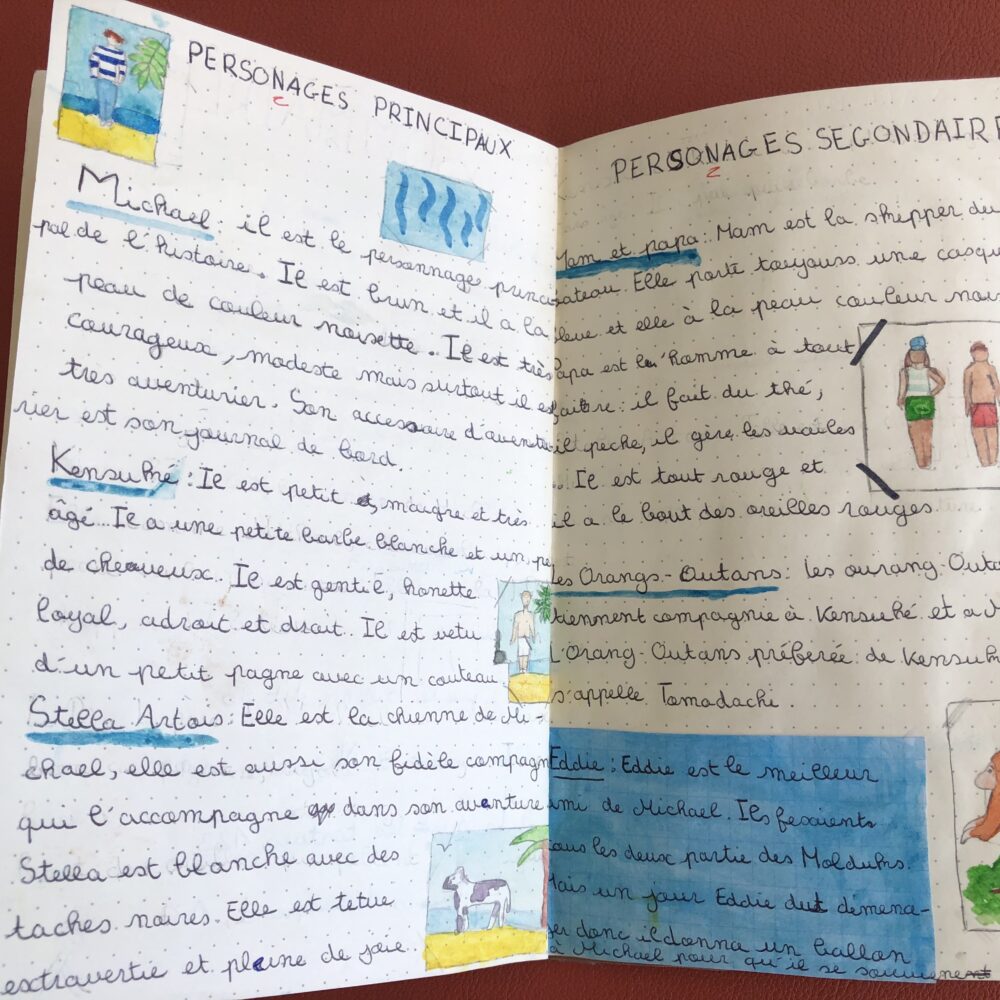 PERSONAGES PRINCIPAUX
Michael: il est le personnage princi-
pal de l'histoire. Il est brun et il a la
peau de couleur noisette. Il est très
courageux, modeste mais surtout il est
tres aventurier. Son accessoire d'aventu-
rier est son journal de bord.
Kensuké: Il est petit, maigre et très
âgé. Il a une petite barbe blanche et un peu
de cheveux. Il est gentil, honette
loyal, adroit et droit. Il est vetu
d'un petit pagne avec un couteau.
Stella Artois: Elle est la chienne de Mi-
chael, elle est aussi son fidèle compagn
qui l'accompagne dans son aventure
Stella est blanche avec des
taches noires. Elle est tetue
extravertie et pleine de joie.
PERSONAGES SEGONDAIRE
Mam et papa: Mam est la skipper du
bateau. Elle porte toujours une casqu
bleue et elle à la peau couleur nois
Papa est l'homme à tout
faire: il fait du thé,
il pêche, il gère les voiles
. Il est tout rouge et
il a le bout des oreilles rouges.
Les Orangs-Outans: Les ourang-Outa
tiennent compagnie à Kensuké et a
L'Orang-Outans préferée de Kensuk
s'appelle Tomodachi.
Eddie: Eddie est le meilleur
ami de Michael. Ils fesaients
tous les deux partie des Molduks.
Mais un jour Eddie dut démena-
ger donc il donna un ballon
à Michael pour qu'il se souvienent